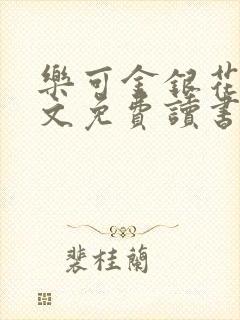 樂可金銀花
文免費讀書
裴桂蘭